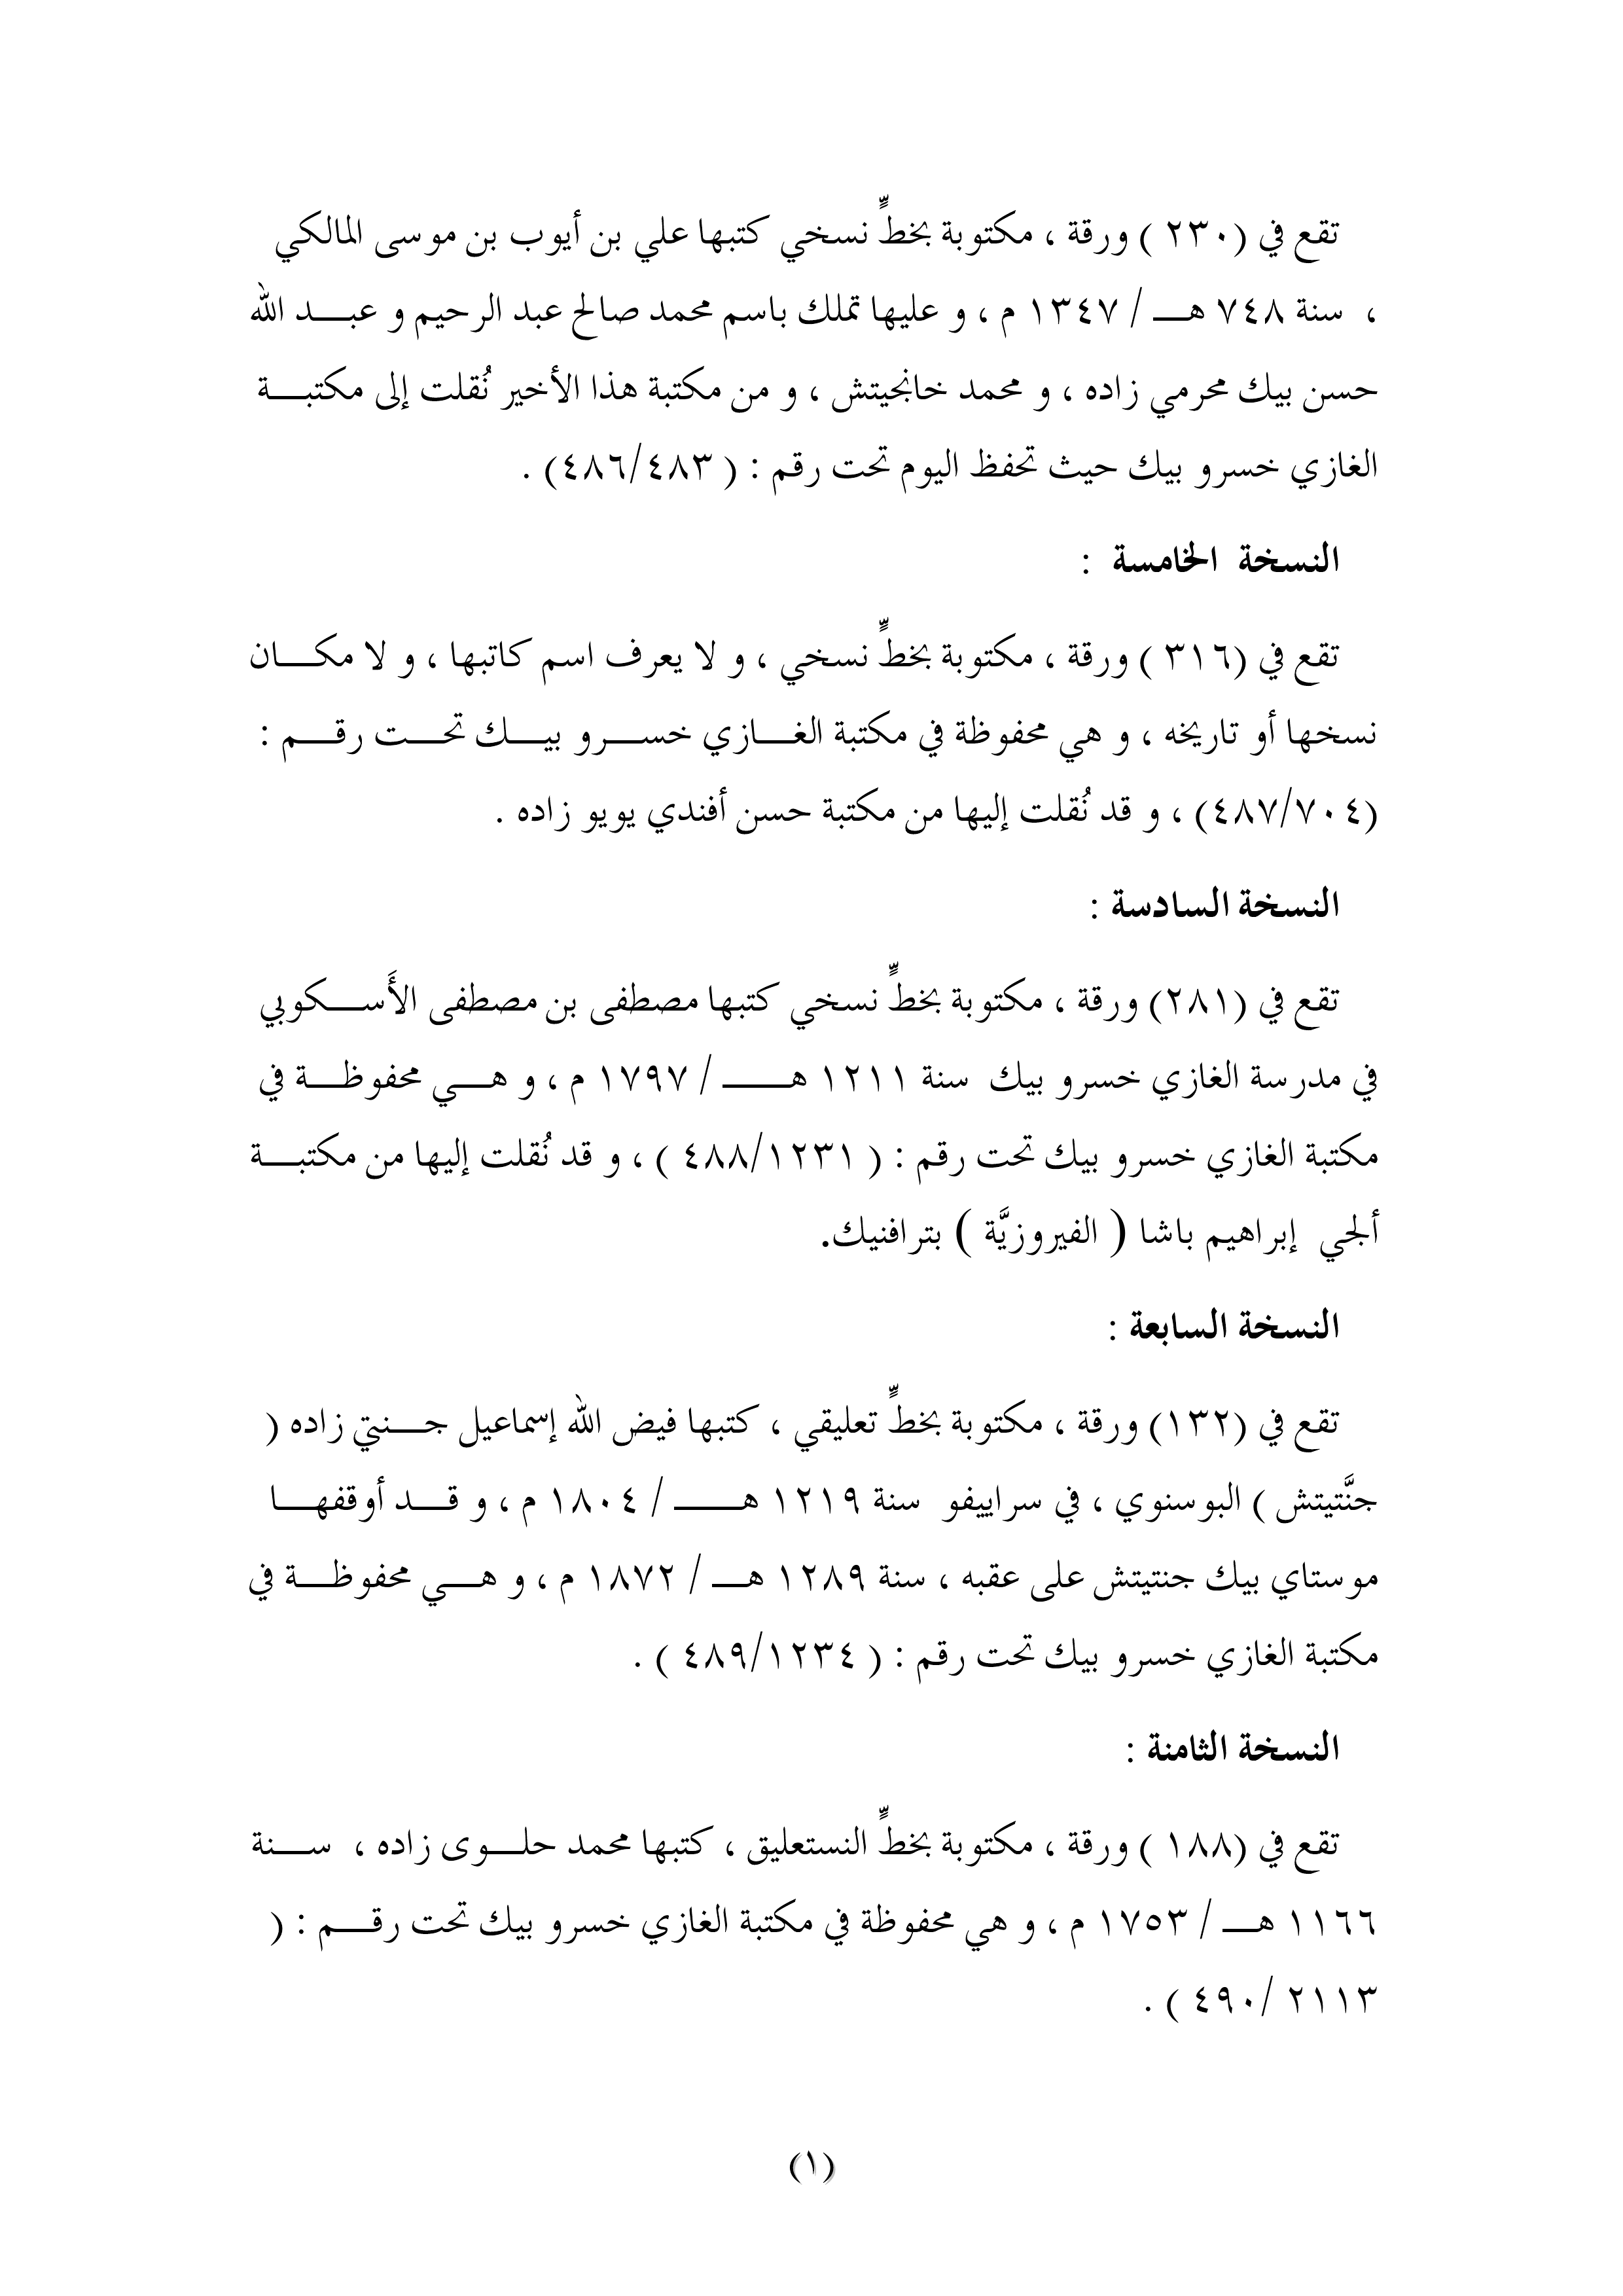 تقع في (٢٣٠ ) ورقة ، مكتوبة بخطٍّ نسخي كتبها علي بن أيوب بن موسى المالكي
، سنة ٧٤٨ هـ / ١٣٤٧ م ، و عليها تملك باسم محمد صالح عبد الرحيم و عبد الله
حسن بيك محرمي زاده ، و محمد خانجيتش ، و من مكتبة هذا الأخير نُقلت إلى مكتبة
الغازي خسرو بيك حيث تحفظ اليوم تحت رقم : ( ٤٨٦/٤٨٣) .
النسخة الخامسة :
تقع في (٣١٦ ) ورقة ، مكتوبة بخطٍّ نسخي ، و لا يعرف اسم كاتبها ، و لا مكان
نسخها أو تاريخه ، و هي محفوظة في مكتبة الغازي خسرو بيك تحت رقم :
(٤٨٧/٧٠٤) ، و قد نُقلت إليها من مكتبة حسن أفندي يويو زاده .
النسخة السادسة :
تقع في (٢٨١) ورقة ، مكتوبة بخطٍّ نسخي كتبها مصطفى بن مصطفى الأَسكوبي
في مدرسة الغازي خسرو بيك سنة ١٢١١ هـ / ١٧٩٧ م ، و هي محفوظة في
مكتبة الغازي خسرو بيك تحت رقم : ( ٤٨٨/١٢٣١ ) ، و قد نُقلت إليها من مكتبة
ألجي إبراهيم باشا ( الفيروزيَّة ) بترافنيك.
النسخة السابعة :
تقع في (١٣٢) ورقة ، مكتوبة بخطٍّ تعليقي ، كتبها فيض الله إسماعيل جنتي زاده (
جنَّتيتش ) البوسنوي ، في سراييفو سنة ١٢١٩ هـ / ١٨٠٤ م ، و قد أوقفها
موستاي بيك جنتيتش على عقبه ، سنة ١٢٨٩ هـ / ١٨٧٢ م ، و هي محفوظة في
مكتبة الغازي خسرو بيك تحت رقم : ( ٤٨٩/١٢٣٤ ) .
النسخة الثامنة :
تقع في (١٨٨ ) ورقة ، مكتوبة بخطٍّ النستعليق ، كتبها محمد حلوى زاده ، سنة
١١٦٦ هـ / ١٧٥٣ م ، و هي محفوظة في مكتبة الغازي خسرو بيك تحت رقم : (
٢١١٣ /٤٩٠ ) .
(١)